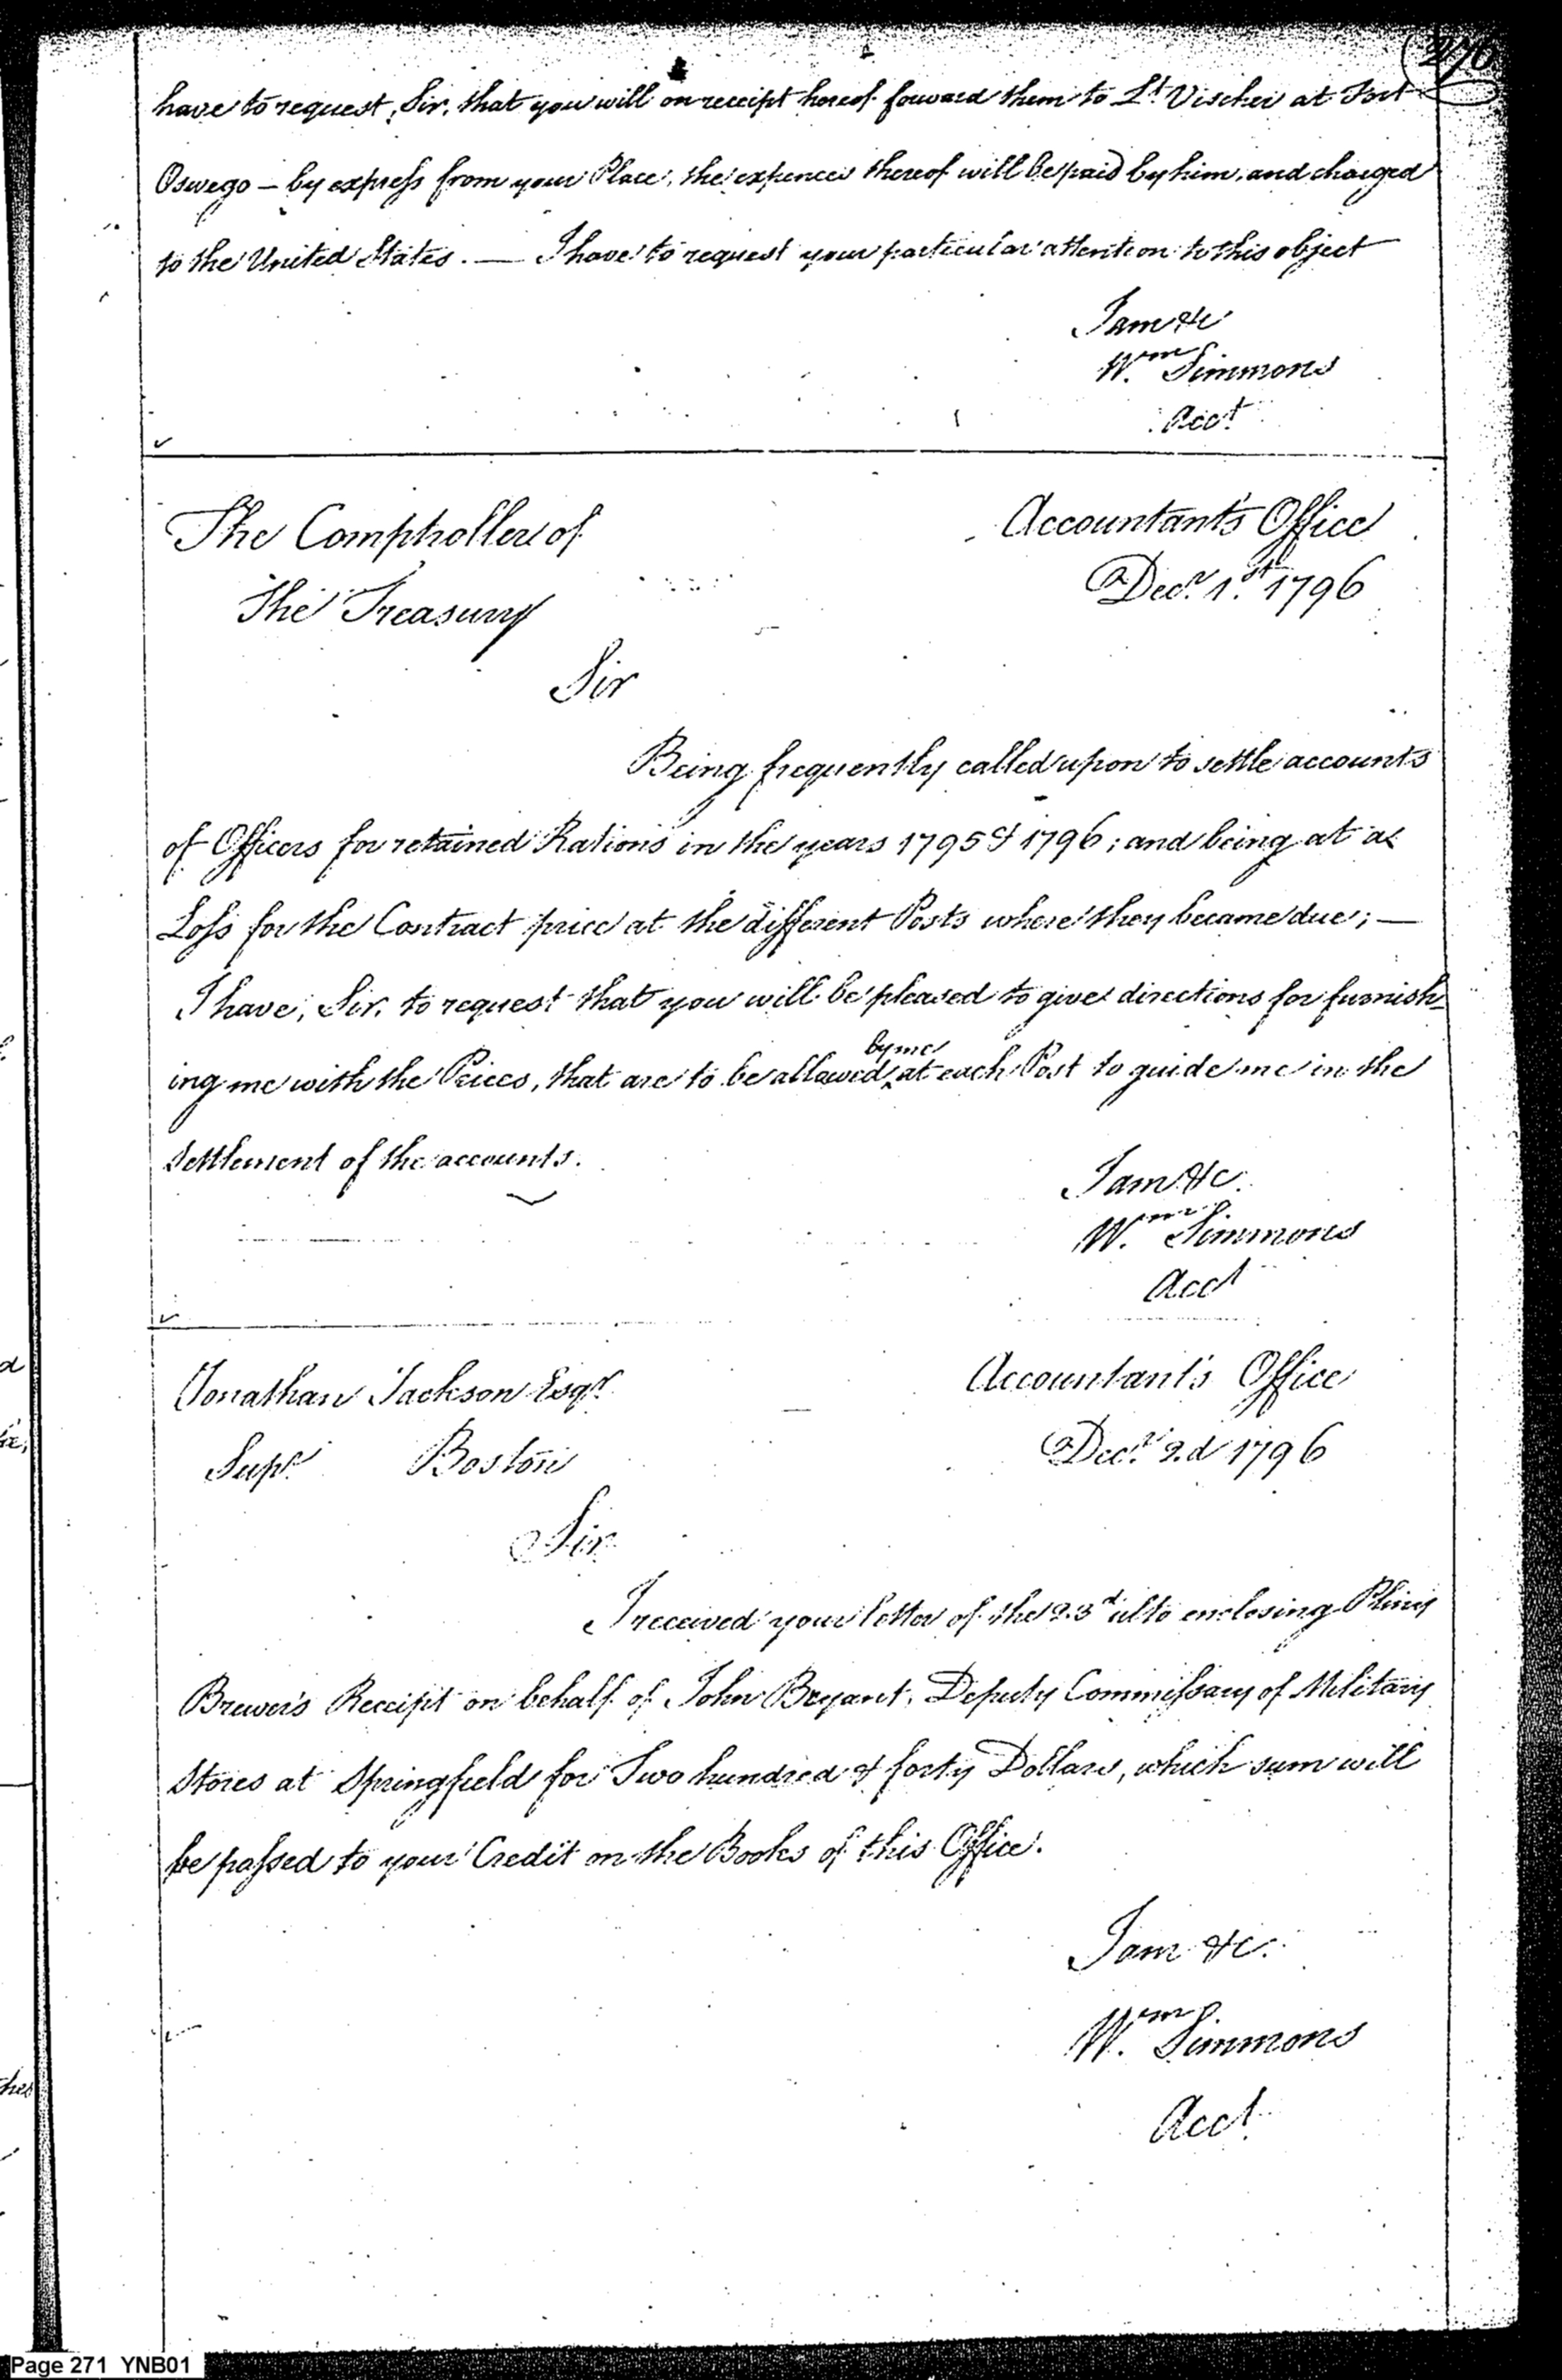 270
have to request, Sir, that you will on receipt hereof forward them to Lt Vischer at Fort
Oswego – by express from your Place, the expences thereof will be paid by him, and charged
to the United States. — I have to request your particular attention to this object
I am &c
Wm Simmons
Acct
The Comptroller of Accountant's Office
The Treasury Decr 1st 1796
Sir
Being frequently called upon to settle accounts
of Officers for retained Rations in the years 1795 & 1796; and being at a
Loss for the Contract price at the different Posts where they became due; —
I have, Sir, to request that you will be pleased to give directions for furnish-
by me
ing me with the Prices, that are to be allowed ^ at each Post to guide me in the
settlement of the accounts.
I am &c.
Wm Simmons
Acct
Jonathan Jackson Esqr Accountant's Office
Supr Boston Decr 2.d 1796
Sir
I received your letter of the 23d ulto enclosing Pliny
Brewer's Receipt on behalf of John Bryant, Deputy Commissary of Military
Stores at Springfield for Two hundred & forty Dollars, which sum will
be passed to your Credit on the Books of this Office.
I am &c.
Wm Simmons
Acct
Page 271 YNB01